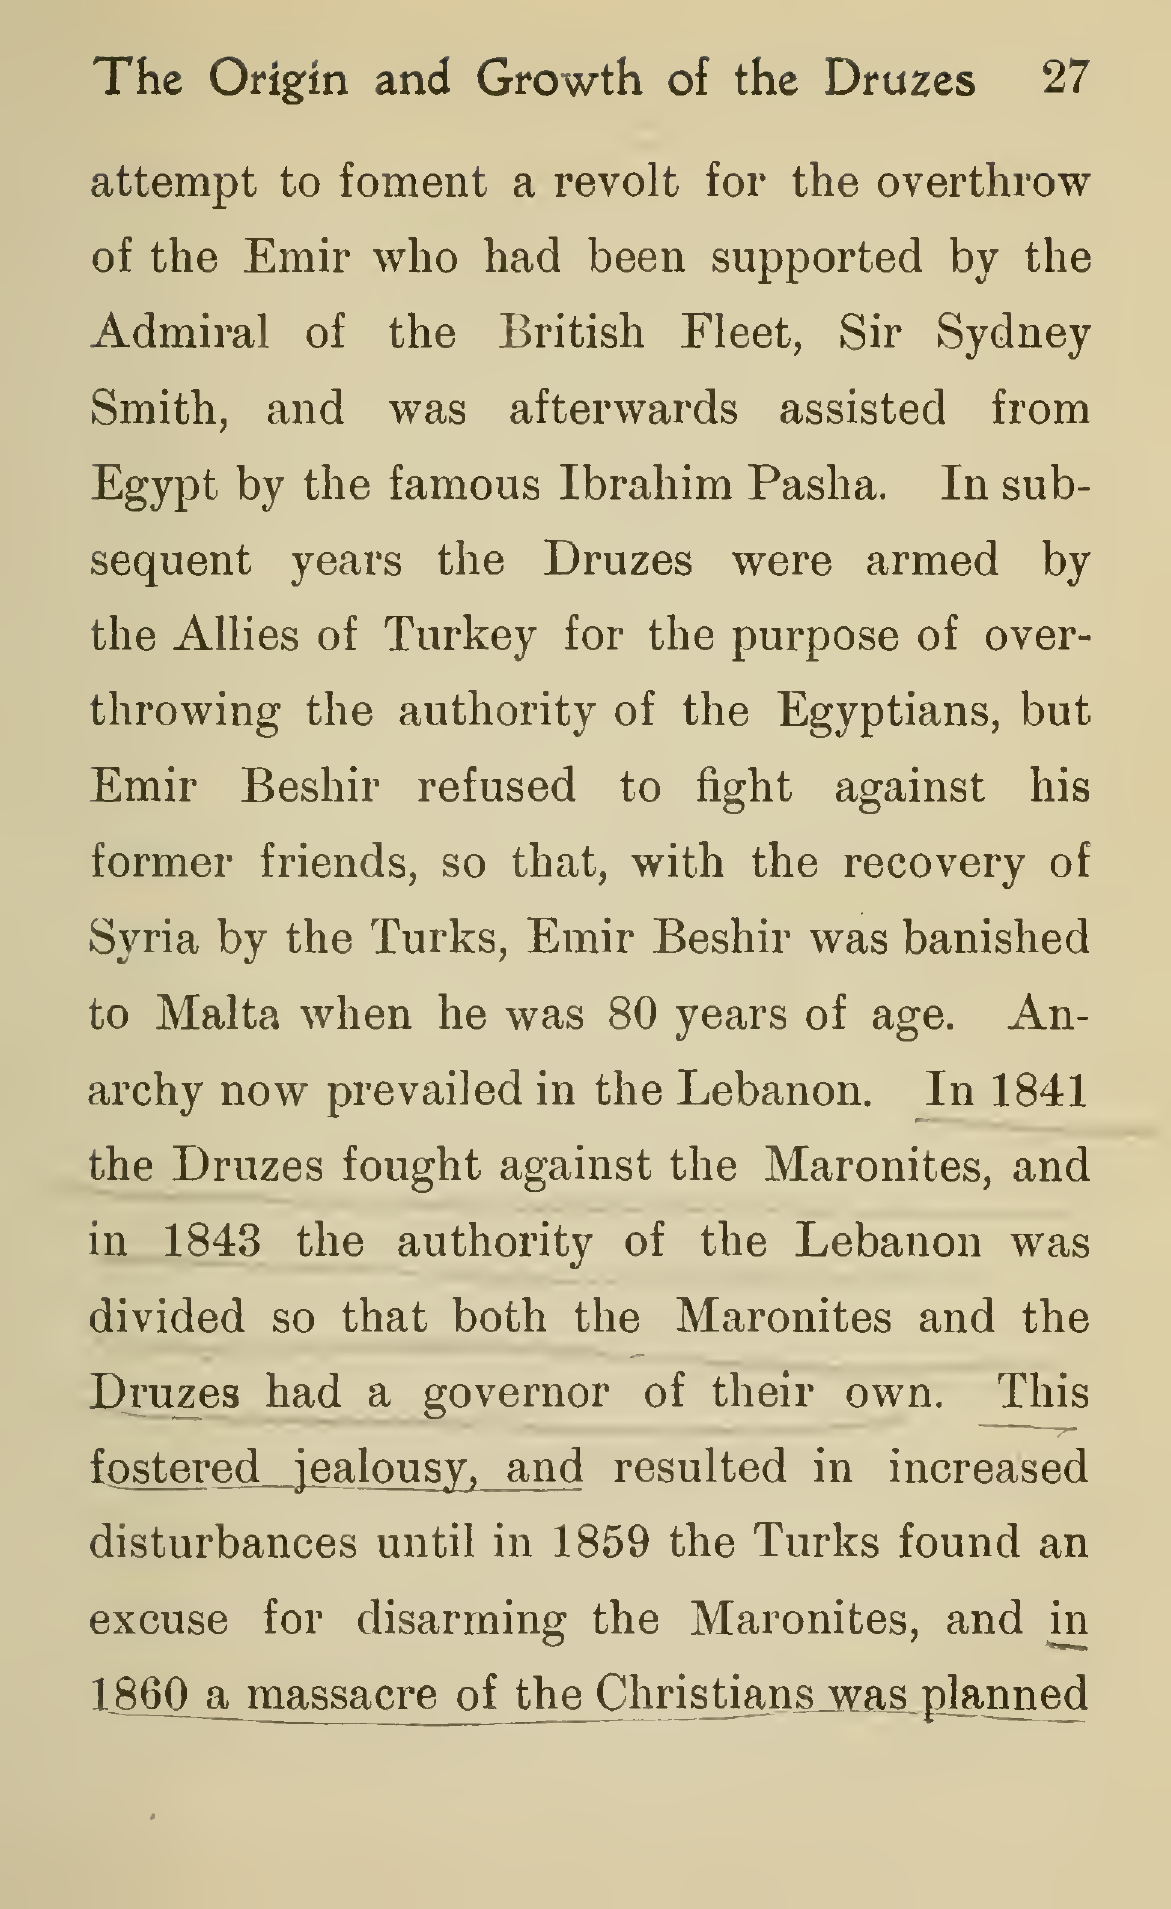 The Origin and Growth of the Druzes 27
attempt to foment a revolt for the overthrow
of the Emir who had been supported by the
Admiral of the British Fleet, Sir Sydney
Smith, and was afterwards assisted from
Egypt by the famous Ibrahim Pasha. In sub-
sequent years the Druzes were armed by
the Allies of Turkey for the purpose of over-
throwing the authority of the Egyptians, but
Emir Beshir refused to fight against his
former friends, so that, with the recovery of
Syria by the Turks, Emir Beshir was banished
to Malta when he was 80 years of age. An-
archy now prevailed in the Lebanon. In 1841
the Druzes fought against the Maronites, and
in 1843 the authority of the Lebanon was
divided so that both the Maronites and the
Druzes had a governor of their own. This
fostered jealousy, and resulted in increased
disturbances until in 1859 the Turks found an
excuse for disarming the Maronites, and in
1860 a massacre of the Christians was planned